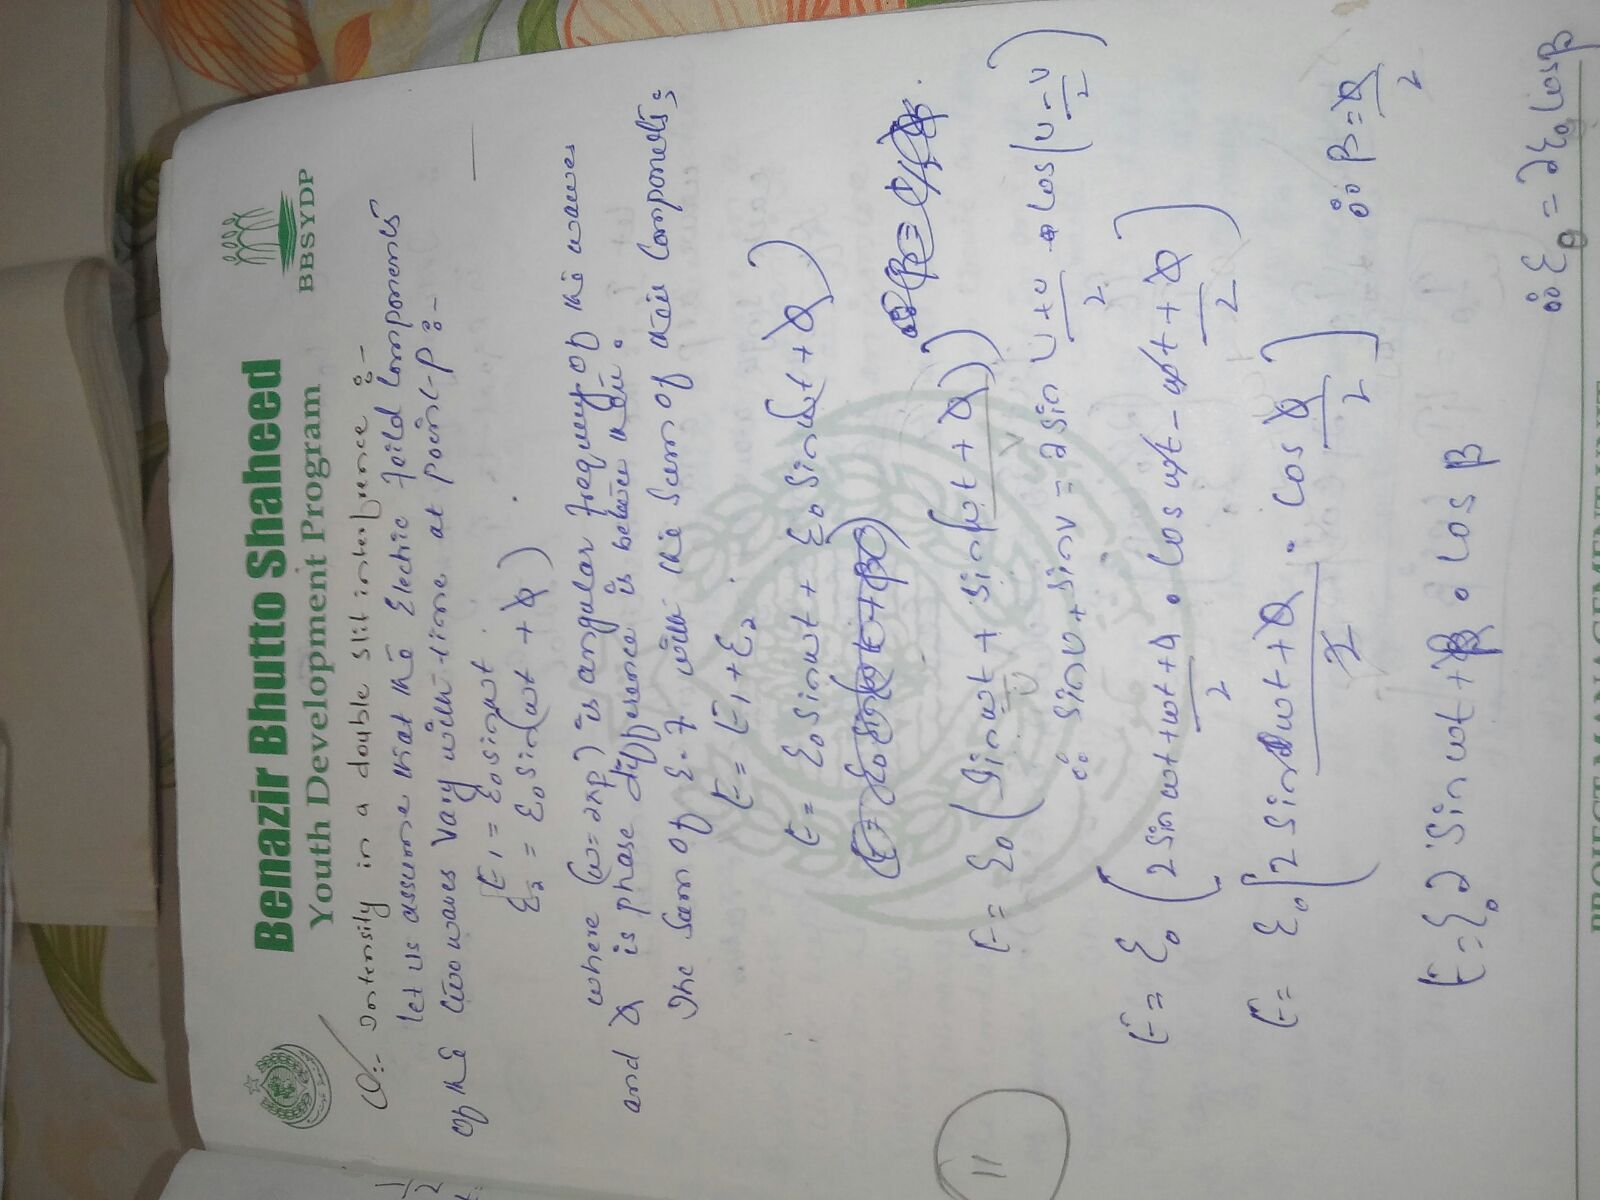 Benazir Bhutto Shaheed
Youth Development Program
BBSYDP
Q:- Intensity in a double slit interbrence :-
let us assume that the Electric faild components
of the two waves vary with time at point-P :-
E1 = E0 sin wt
E2 = E0 sin(wt + Φ)
where (w = 2πf) is angular frequency of the waves
and Φ is phase difference is between them.
The Sum of E-7 with the sum of their components
E = E1 + E2
E = E0 sin wt + E0 sin(wt + Φ)
E = E0 (Sin wt + Sin(wt + Φ))
∴ Sin U + Sin V = 2 Sin U+V/2 . Cos(U-V/2)
E = E0 (2 Sin wt+wt+Φ/2 . Cos wt-wt+Φ/2)
E = E0 [2 Sin 2wt+Φ/2 . Cos Φ/2]
∴ β = Φ/2
E = E0 2 Sin wt + β . Cos β
∴ Eθ = 2E0 Cos β
11
PROJECT MANAGEMENT UNIT